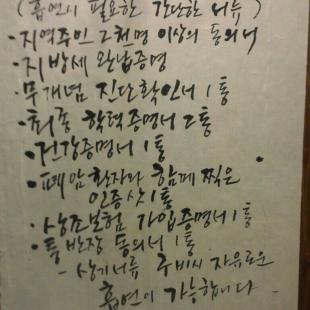 (흡연시 필요한 간단한 서류)
·지역주민 2천명 이상의 동의서
·지방세 완납증명
·무개념 진단확인서 1통
·최종 학력증명서 2통
·건강증명서 1통
·폐암 환자와 함께 찍은
인증샷 1통
·상조보험 가입증명서 1통
·통반장 동의서 1통
- 상기서류 구비시 자유로운
흡연이 가능합니다